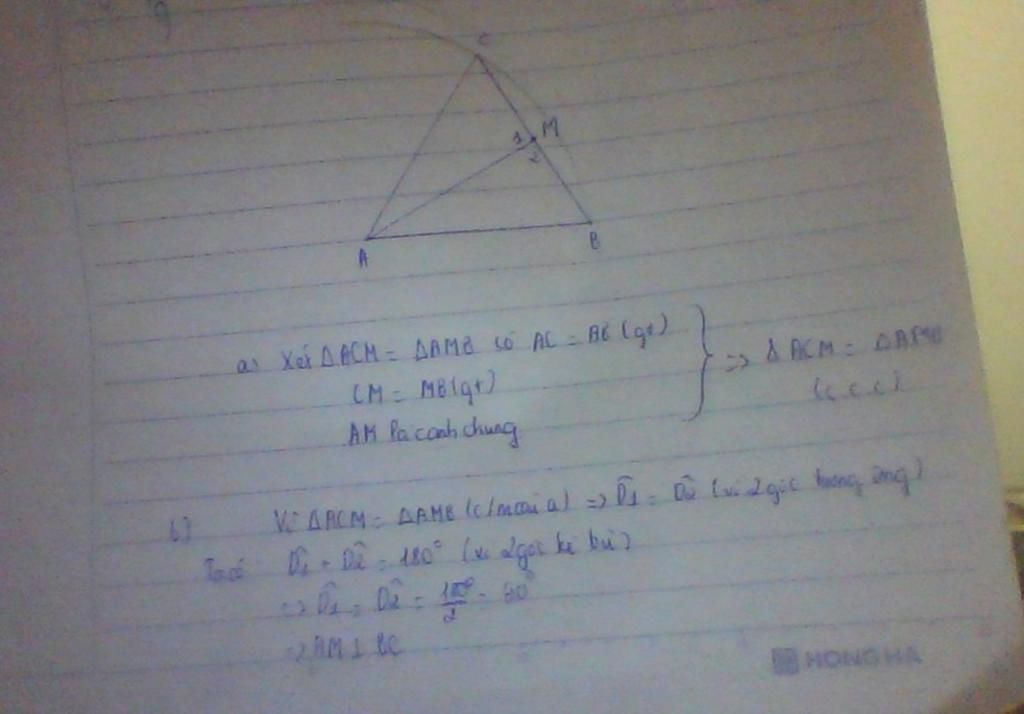 C
M
1
2
A
B
a, Xét ΔACM = ΔAMB có AC = AB (gt)
CM = MB (gt)
AM là cạnh chung
=> ΔACM = ΔAMB
(c.c.c)
b) Vì ΔACM = ΔAMB (c/m câu a) => D̂1 = D̂2 (vì 2 góc tương ứng)
Ta có D̂1 + D̂2 = 180° (vì 2 góc kề bù)
=> D̂1 = D̂2 = 180°/2 = 90°
=> AM ⊥ BC
HONG HA